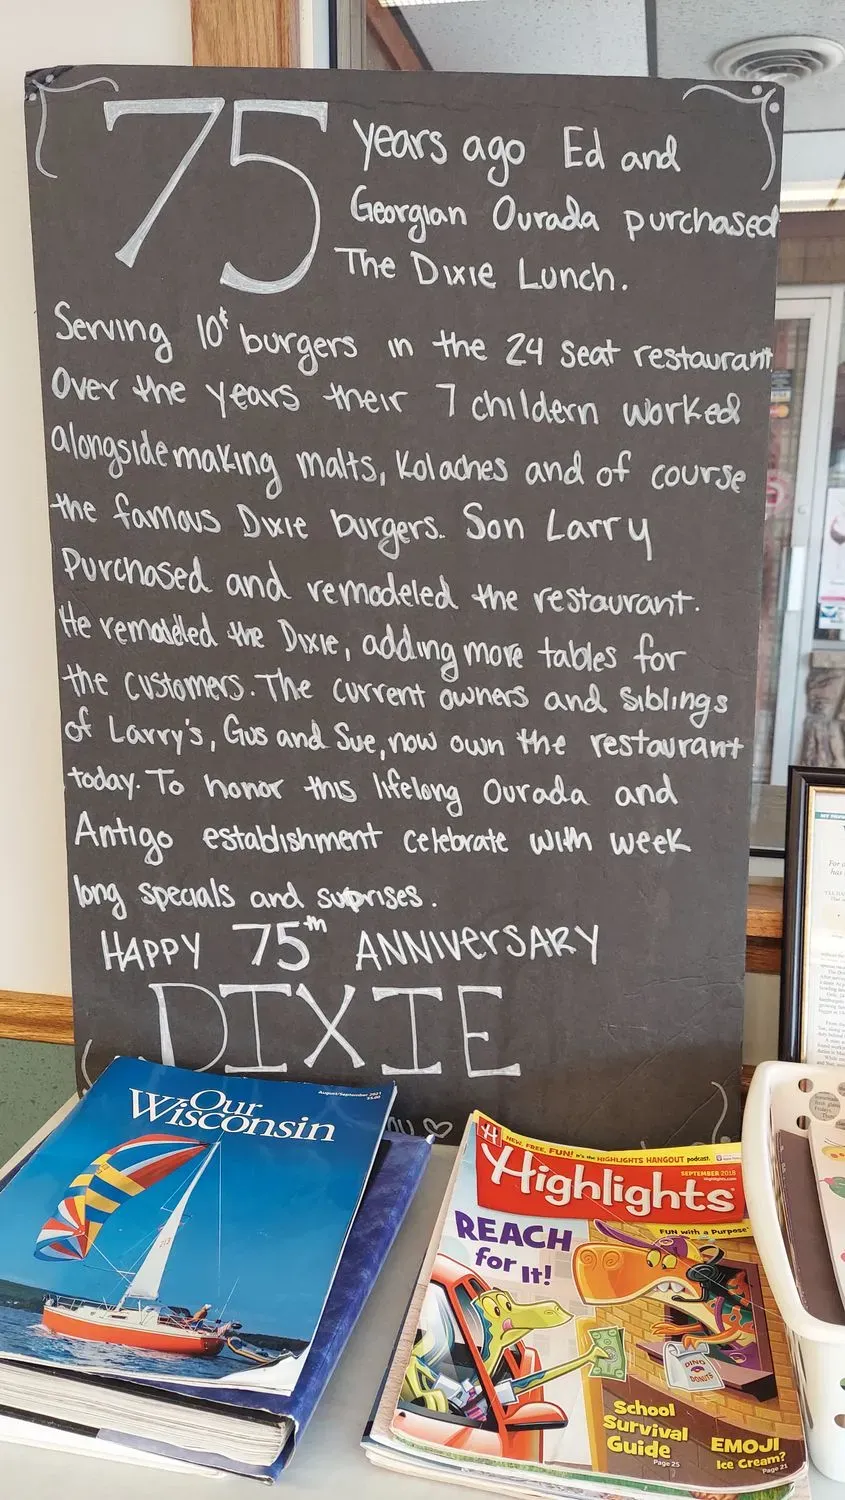 75 years ago Ed and
Georgian Ourada purchased
The Dixie Lunch.
Serving 10¢ burgers in the 24 seat restaurant
Over the years their 7 childern worked
alongside making malts, Kolaches and of course
the famous Dixie burgers. Son Larry
Purchased and remodeled the restaurant.
He remodeled the Dixie, adding more tables for
the customers. The current owners and siblings
of Larry's, Gus and Sue, now own the restaurant
today. To honor this lifelong Ourada and
Antigo establishment celebrate with week
long specials and suprises.
HAPPY 75th ANNIVERSARY
DIXIE
August/September 2021
Our
Wisconsin
NEW, FREE, FUN! It's the HIGHLIGHTS HANGOUT podcast.
H
Highlights
SEPTEMBER 2018
Highlights.com
FUN with a Purpose
REACH
for It!
DINO
DONUTS
School
Survival
Guide
Page 25
EMOJI
Ice Cream?
Page 21